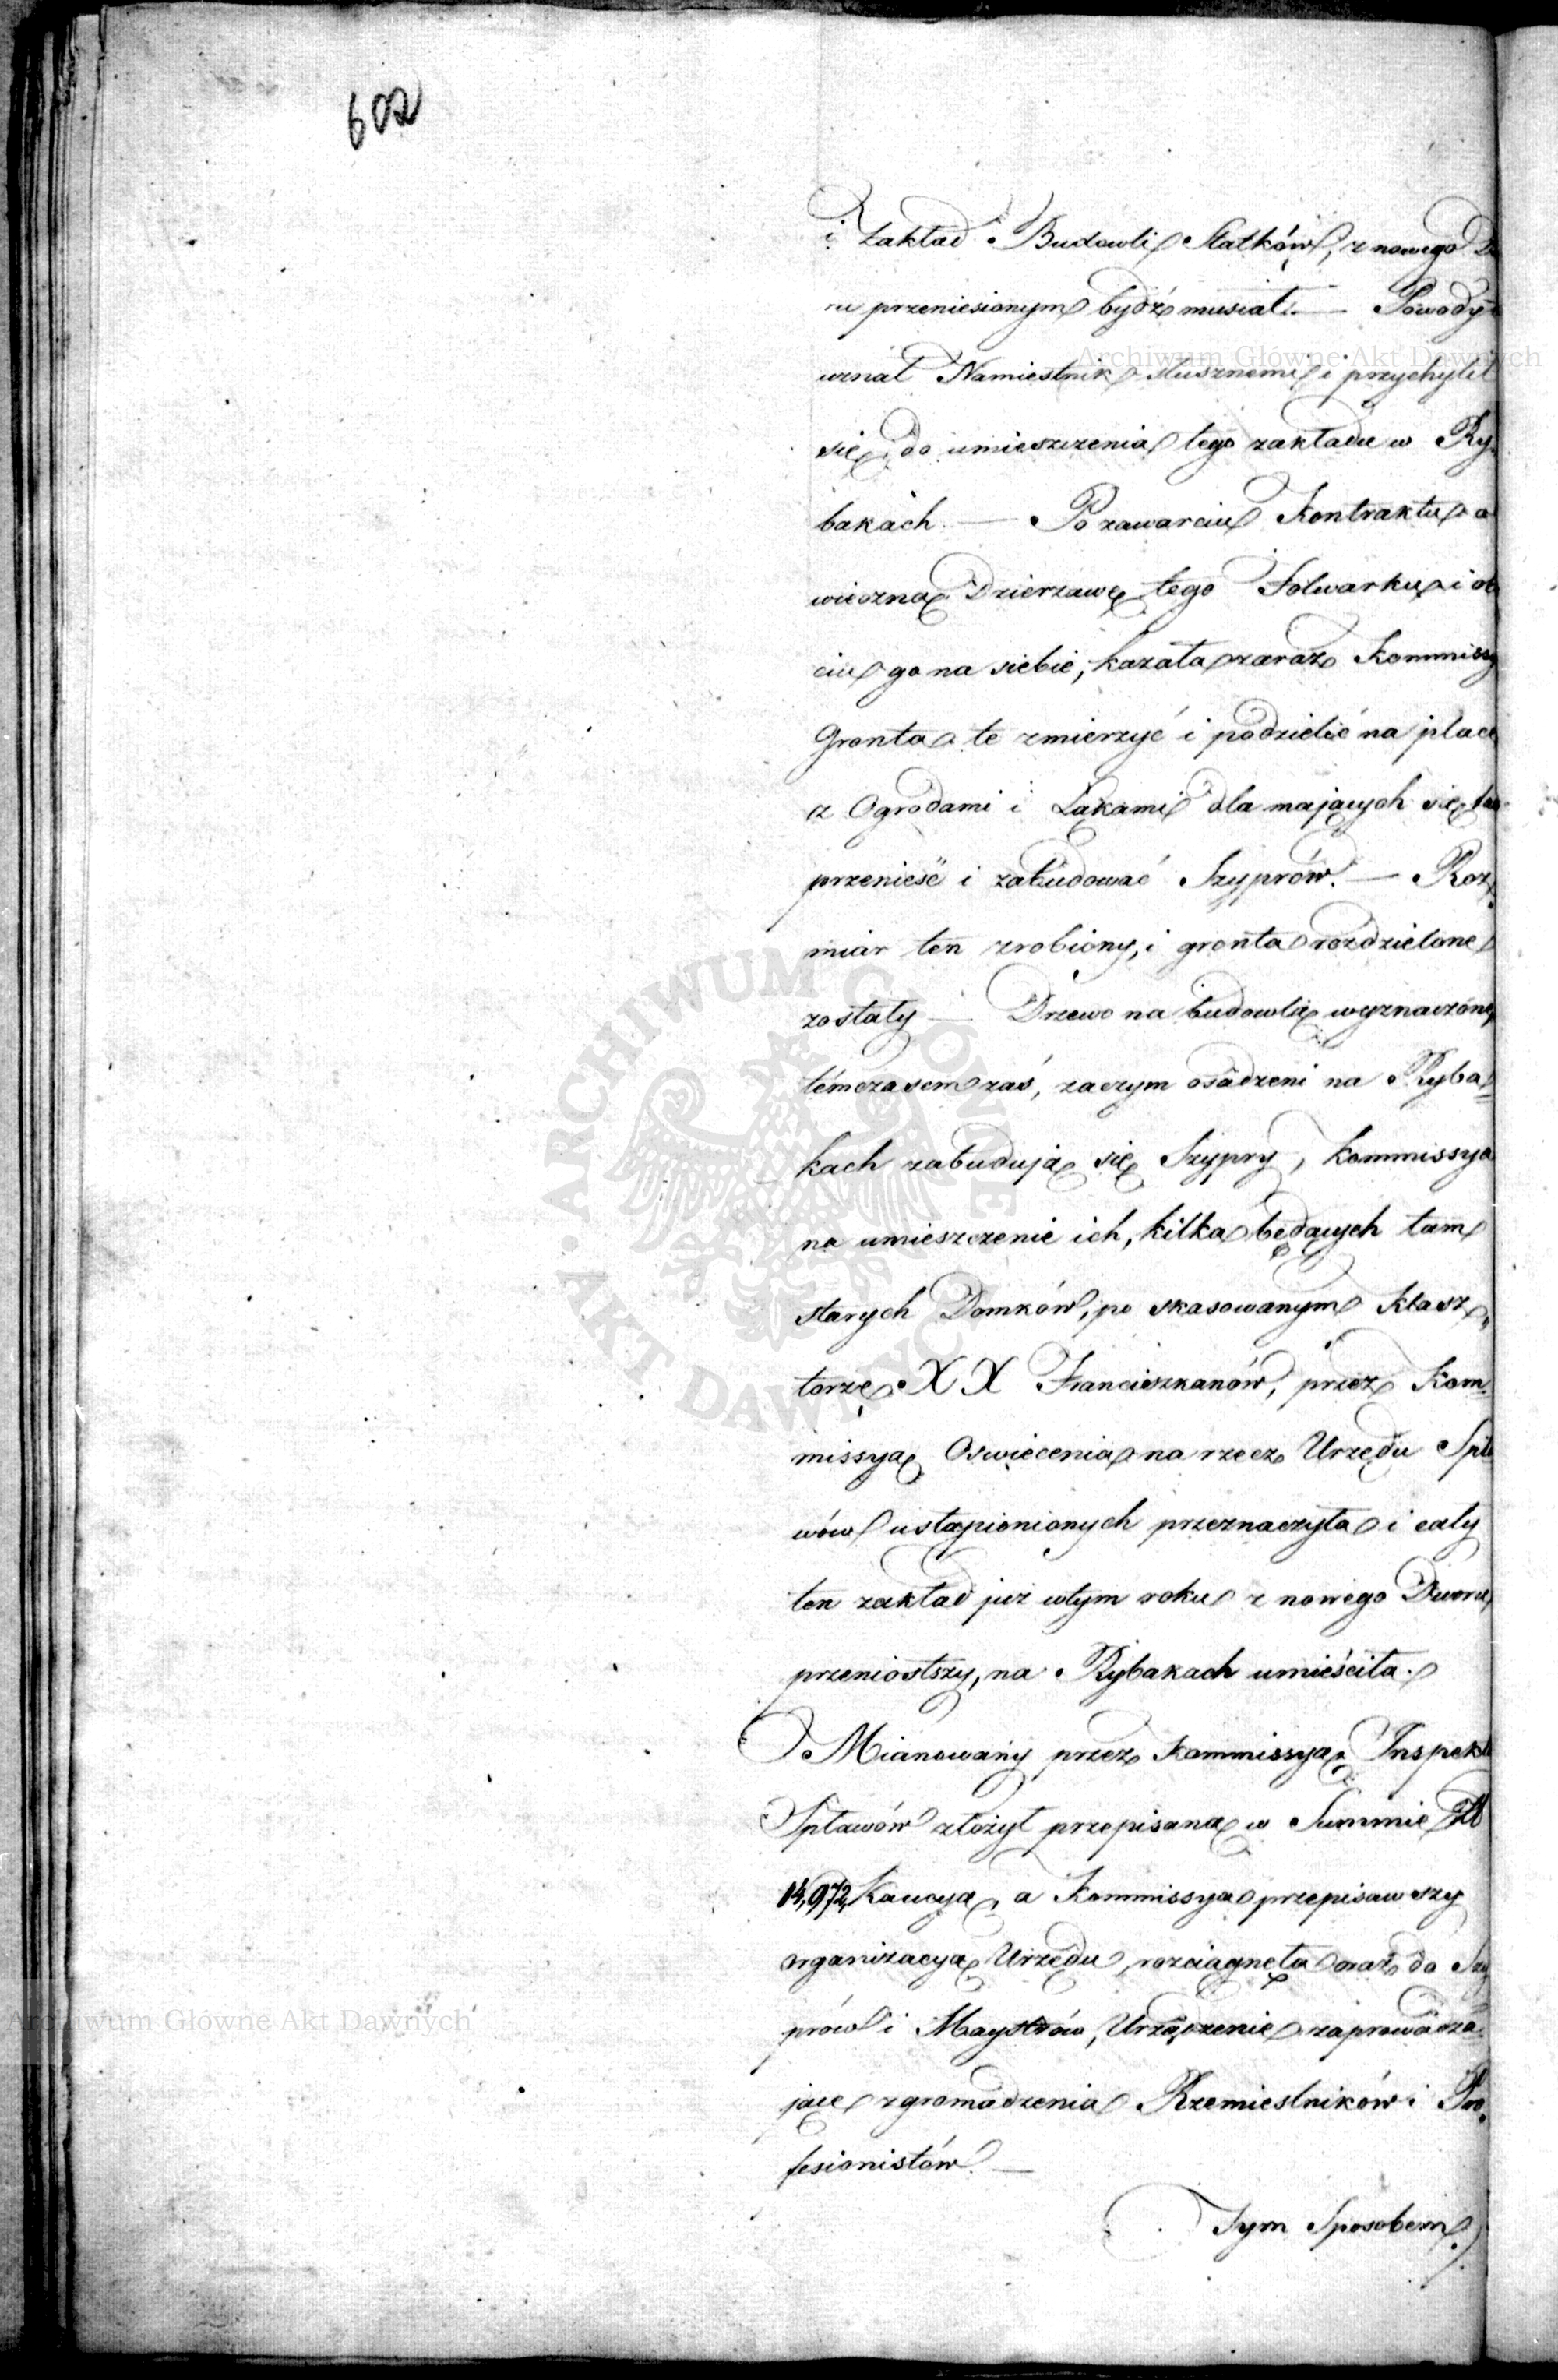 602
i Zakład Budowli Statków, z nowego
ru przeniesionym bydź musiał. — Powody
uznał Namiestnik słusznemi i przychylił
się do umieszczenia tego zakładu w Ry-
bakach. — Po zawarciu Kontraktu o
wieczną Dzierzawę tego Folwarku i ob
ciu go na siebie, kazała zaraz Kommissy
Gronta te zmierzyć i podzielić na place
z Ogrodami i Łąkami dla mających się tam
przenieść i zabudować Szyprów. — Roz-
miar ten zrobiony, i gronta rozdzielone
zostały — Drzewo na budowlą wyznaczone,
témczasem zaś, zaczym osadzeni na Ryba=
kach zabudują się Szypry, Kommissya
na umieszczenie ich, kilka będących tam
starych Domków, po skasowanym Klasz„
torze XX Franciszkanów, przez Kom-
missyą Oswiecenia na rzecz Urzędu Spła
wów ustąpionionych przeznaczyła i cały
ten zakład już wtym roku z nowego Dworu
przeniosłszy, na Rybakach umieściła.
Mianowany przez Kommissyą Inspekt
Spławów złożył przepisaną w Summie Zł
14,972, Kaucyą, a Kommissya przepisawszy
organizacyą Urzędu, rozciągnęła oraz do Szy
prów i Maystrów, Urządzenie zaprowadza-
jące zgromadzenia Rzemieslników i Pro-
fesionistów. —
Tym Sposobem
Archiwum Główne Akt Dawnych
Archiwum Główne Akt Dawnych
ARCHIWUM GŁÓWNE AKT DAWNYCH